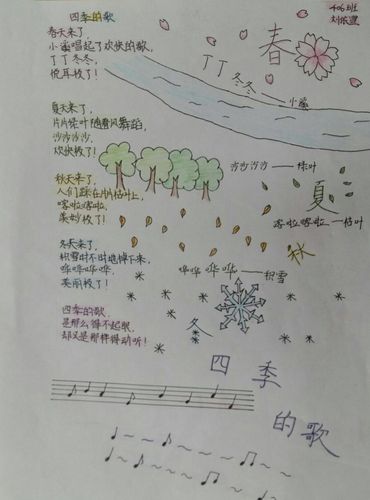 四季的歌
春天来了,
小溪唱起了欢快的歌,
丁丁冬冬,
悦耳极了!
夏天来了,
片片绿叶随着风舞蹈,
沙沙沙沙,
欢快极了!
秋天来了,
人们踩在片片枯叶上,
喀啦喀啦,
美妙极了!
冬天来了,
积雪时不时地掉下来,
哗哗哗哗,
美丽极了!
四季的歌,
是那么得不起眼,
却又是那样得动听!
406班
春
丁丁冬冬——小溪
沙沙沙沙——绿叶
夏
喀啦喀啦——枯叶
秋
哗哗哗哗——积雪
冬
四季
的歌